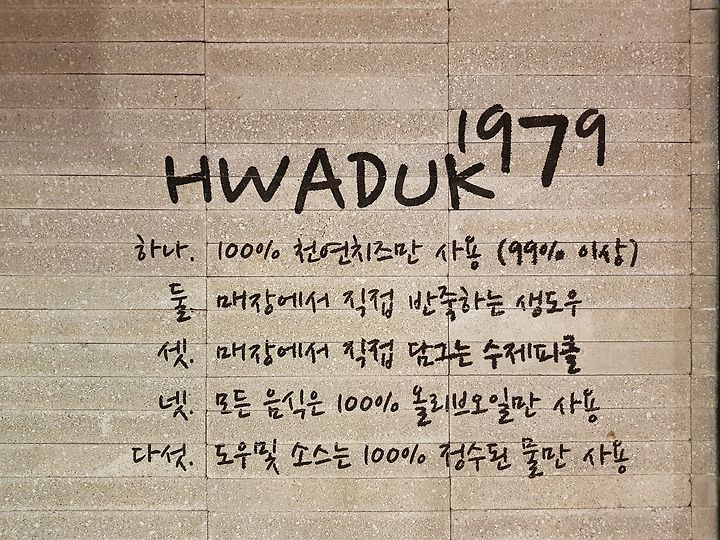 HWADUK 1979
하나. 100% 천연치즈만 사용 (99% 이상)
둘. 매장에서 직접 반죽하는 생도우
셋. 매장에서 직접 담그는 수제피클
넷. 모든 음식은 100% 올리브오일만 사용
다섯. 도우및 소스는 100% 정수된 물만 사용